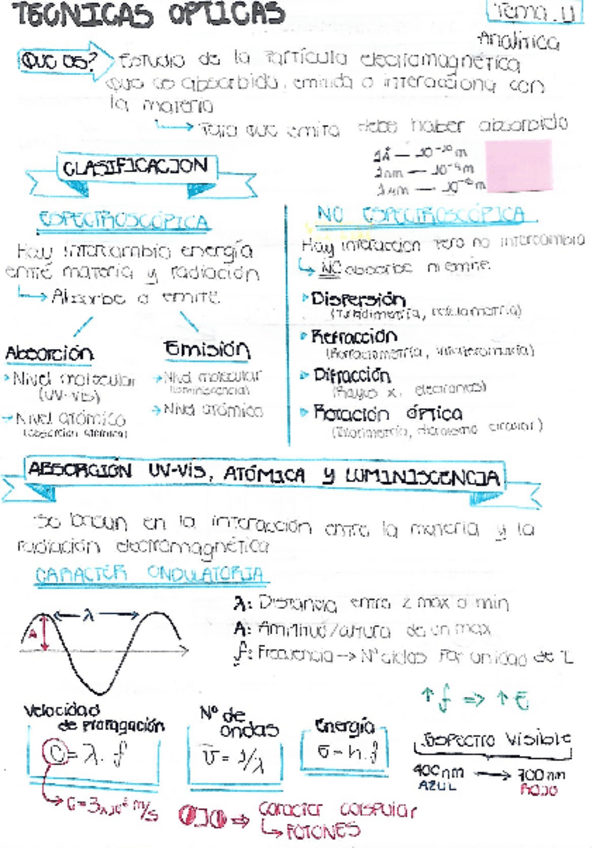 TECNICAS OPTICAS
Tema 11
Analítica
Que es? Estudio de la Partícula electromagnética
que es absorbida, emitida o interacciona con
la materia
Para que emita debe haber absorbido
1Å — 10⁻¹⁰ m
1nm — 10⁻⁹ m
1μm — 10⁻⁶ m
CLASIFICACION
ESPECTROSCÓPICA
Hay intercambio energía
entre materia y radiación
Absorbe o emite.
Absorción
Nivel molecular
(UV-VIS)
Nivel atómico
(absorción atómica)
Emisión
Nivel molecular
(luminiscencia)
Nivel atómico
NO ESPECTROSCÓPICA
Hay interaccion pero no intercambio
NO absorbe ni emite.
Dispersión
(Turbidimetría, nefelometría)
Refracción
(Refractometría, interferometría)
Difracción
(Rayos x, electrones)
Rotación óptica
(Polarimetría, dicroismo circular)
ABSORCIÓN UV-VIS, ATÓMICA Y LUMINISCENCIA
Se basan en la interacción entre la materia y la
radiación electromagnética
CARACTER ONDULATORIA
λ
A
λ: Distancia entre 2 max o min
A: Amplitud/altura de un max
f: Frecuencia → Nº ciclos Por unidad de t
↑ f ⇒ ↑ E
Velocidad
de propagación
C = λ · f
C = 3 × 10⁸ m/s
Nº de
ondas
ν̅ = 1/λ
Energía
E = h · f
ESPECTRO Visible
400nm → 700nm
AZUL ROJO
⇒ Caracter corpuscular
FOTONES